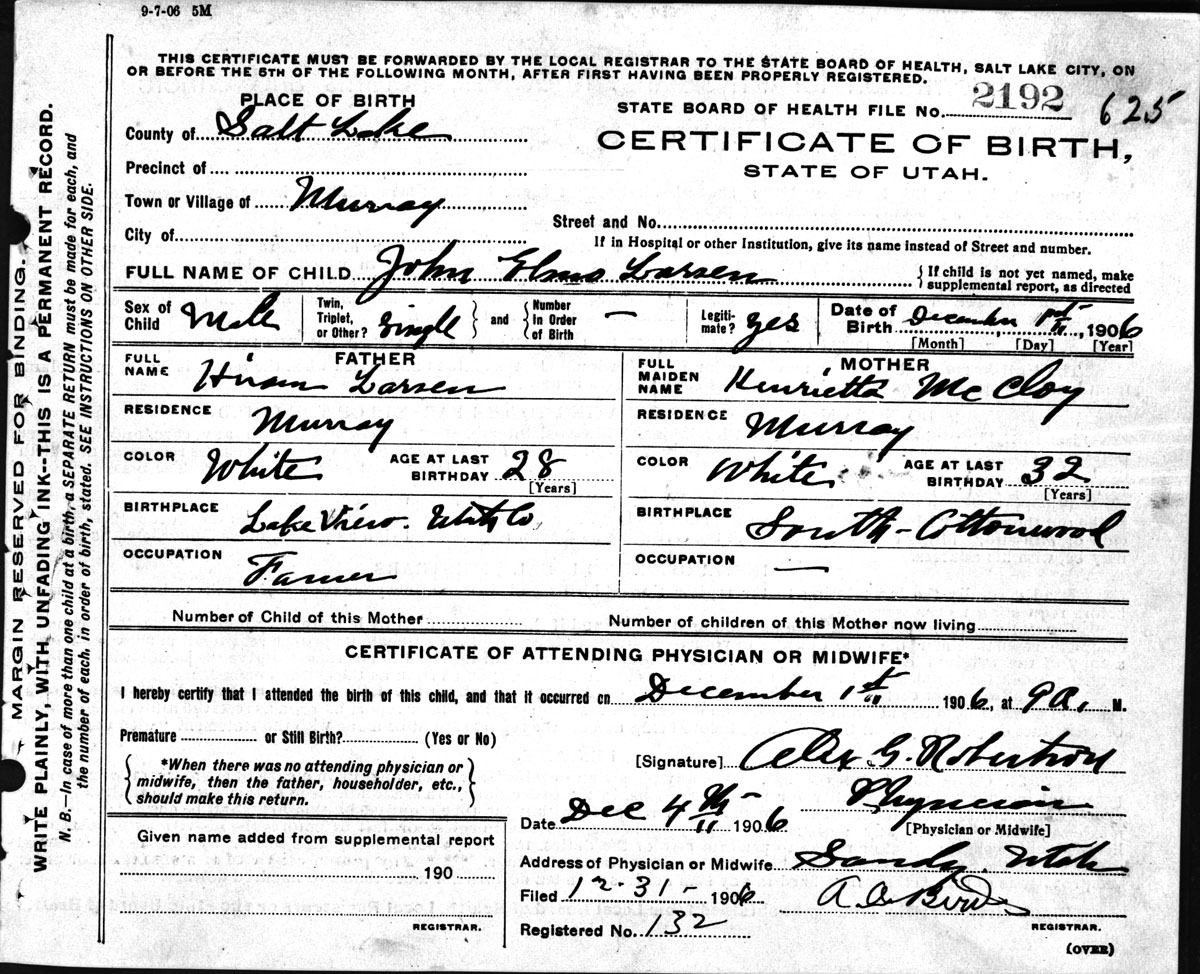 9-7-06 5M
THIS CERTIFICATE MUST BE FORWARDED BY THE LOCAL REGISTRAR TO THE STATE BOARD OF HEALTH, SALT LAKE CITY, ON
OR BEFORE THE 5TH OF THE FOLLOWING MONTH, AFTER FIRST HAVING BEEN PROPERLY REGISTERED.
PLACE OF BIRTH
STATE BOARD OF HEALTH FILE No. 2192 625
County of Salt Lake
CERTIFICATE OF BIRTH,
STATE OF UTAH.
Precinct of
Town or Village of Murray
Street and No.
City of
If in Hospital or other Institution, give its name instead of Street and number.
FULL NAME OF CHILD John Elmo Larsen
{If child is not yet named, make
supplemental report, as directed
Sex of Child Male
Twin, Triplet, or Other? Single } and { Number In Order of Birth —
Legiti-mate? yes
Date of Birth December 1st, 1906
[Month] [Day] [Year]
FATHER
FULL NAME Hiram Larsen
RESIDENCE Murray
COLOR White AGE AT LAST BIRTHDAY 28
[Years]
BIRTHPLACE Lake View. Utah Co
OCCUPATION Farmer
MOTHER
FULL MAIDEN NAME Henrietta McCloy
RESIDENCE Murray
COLOR White AGE AT LAST BIRTHDAY 32
[Years]
BIRTHPLACE South-Cottonwood
OCCUPATION —
Number of Child of this Mother
Number of children of this Mother now living
CERTIFICATE OF ATTENDING PHYSICIAN OR MIDWIFE*
I hereby certify that I attended the birth of this child, and that it occurred on December 1st 1906, at 9 A. M.
Premature or Still Birth? (Yes or No)
{*When there was no attending physician or
midwife, then the father, householder, etc.,
should make this return.}
[Signature] Alex G. Robertson
Date Dec 4th 1906
Physician
[Physician or Midwife]
Address of Physician or Midwife Sandy, Utah
Filed 12-31- 1906
REGISTRAR.
Registered No. 132
(OVER)
Given name added from supplemental report
190
REGISTRAR.
MARGIN RESERVED FOR BINDING.
WRITE PLAINLY, WITH UNFADING INK--THIS IS A PERMANENT RECORD.
N. B.—In case of more than one child at a birth, a SEPARATE RETURN must be made for each, and
the number of each, in order of birth, stated. SEE INSTRUCTIONS ON OTHER SIDE.